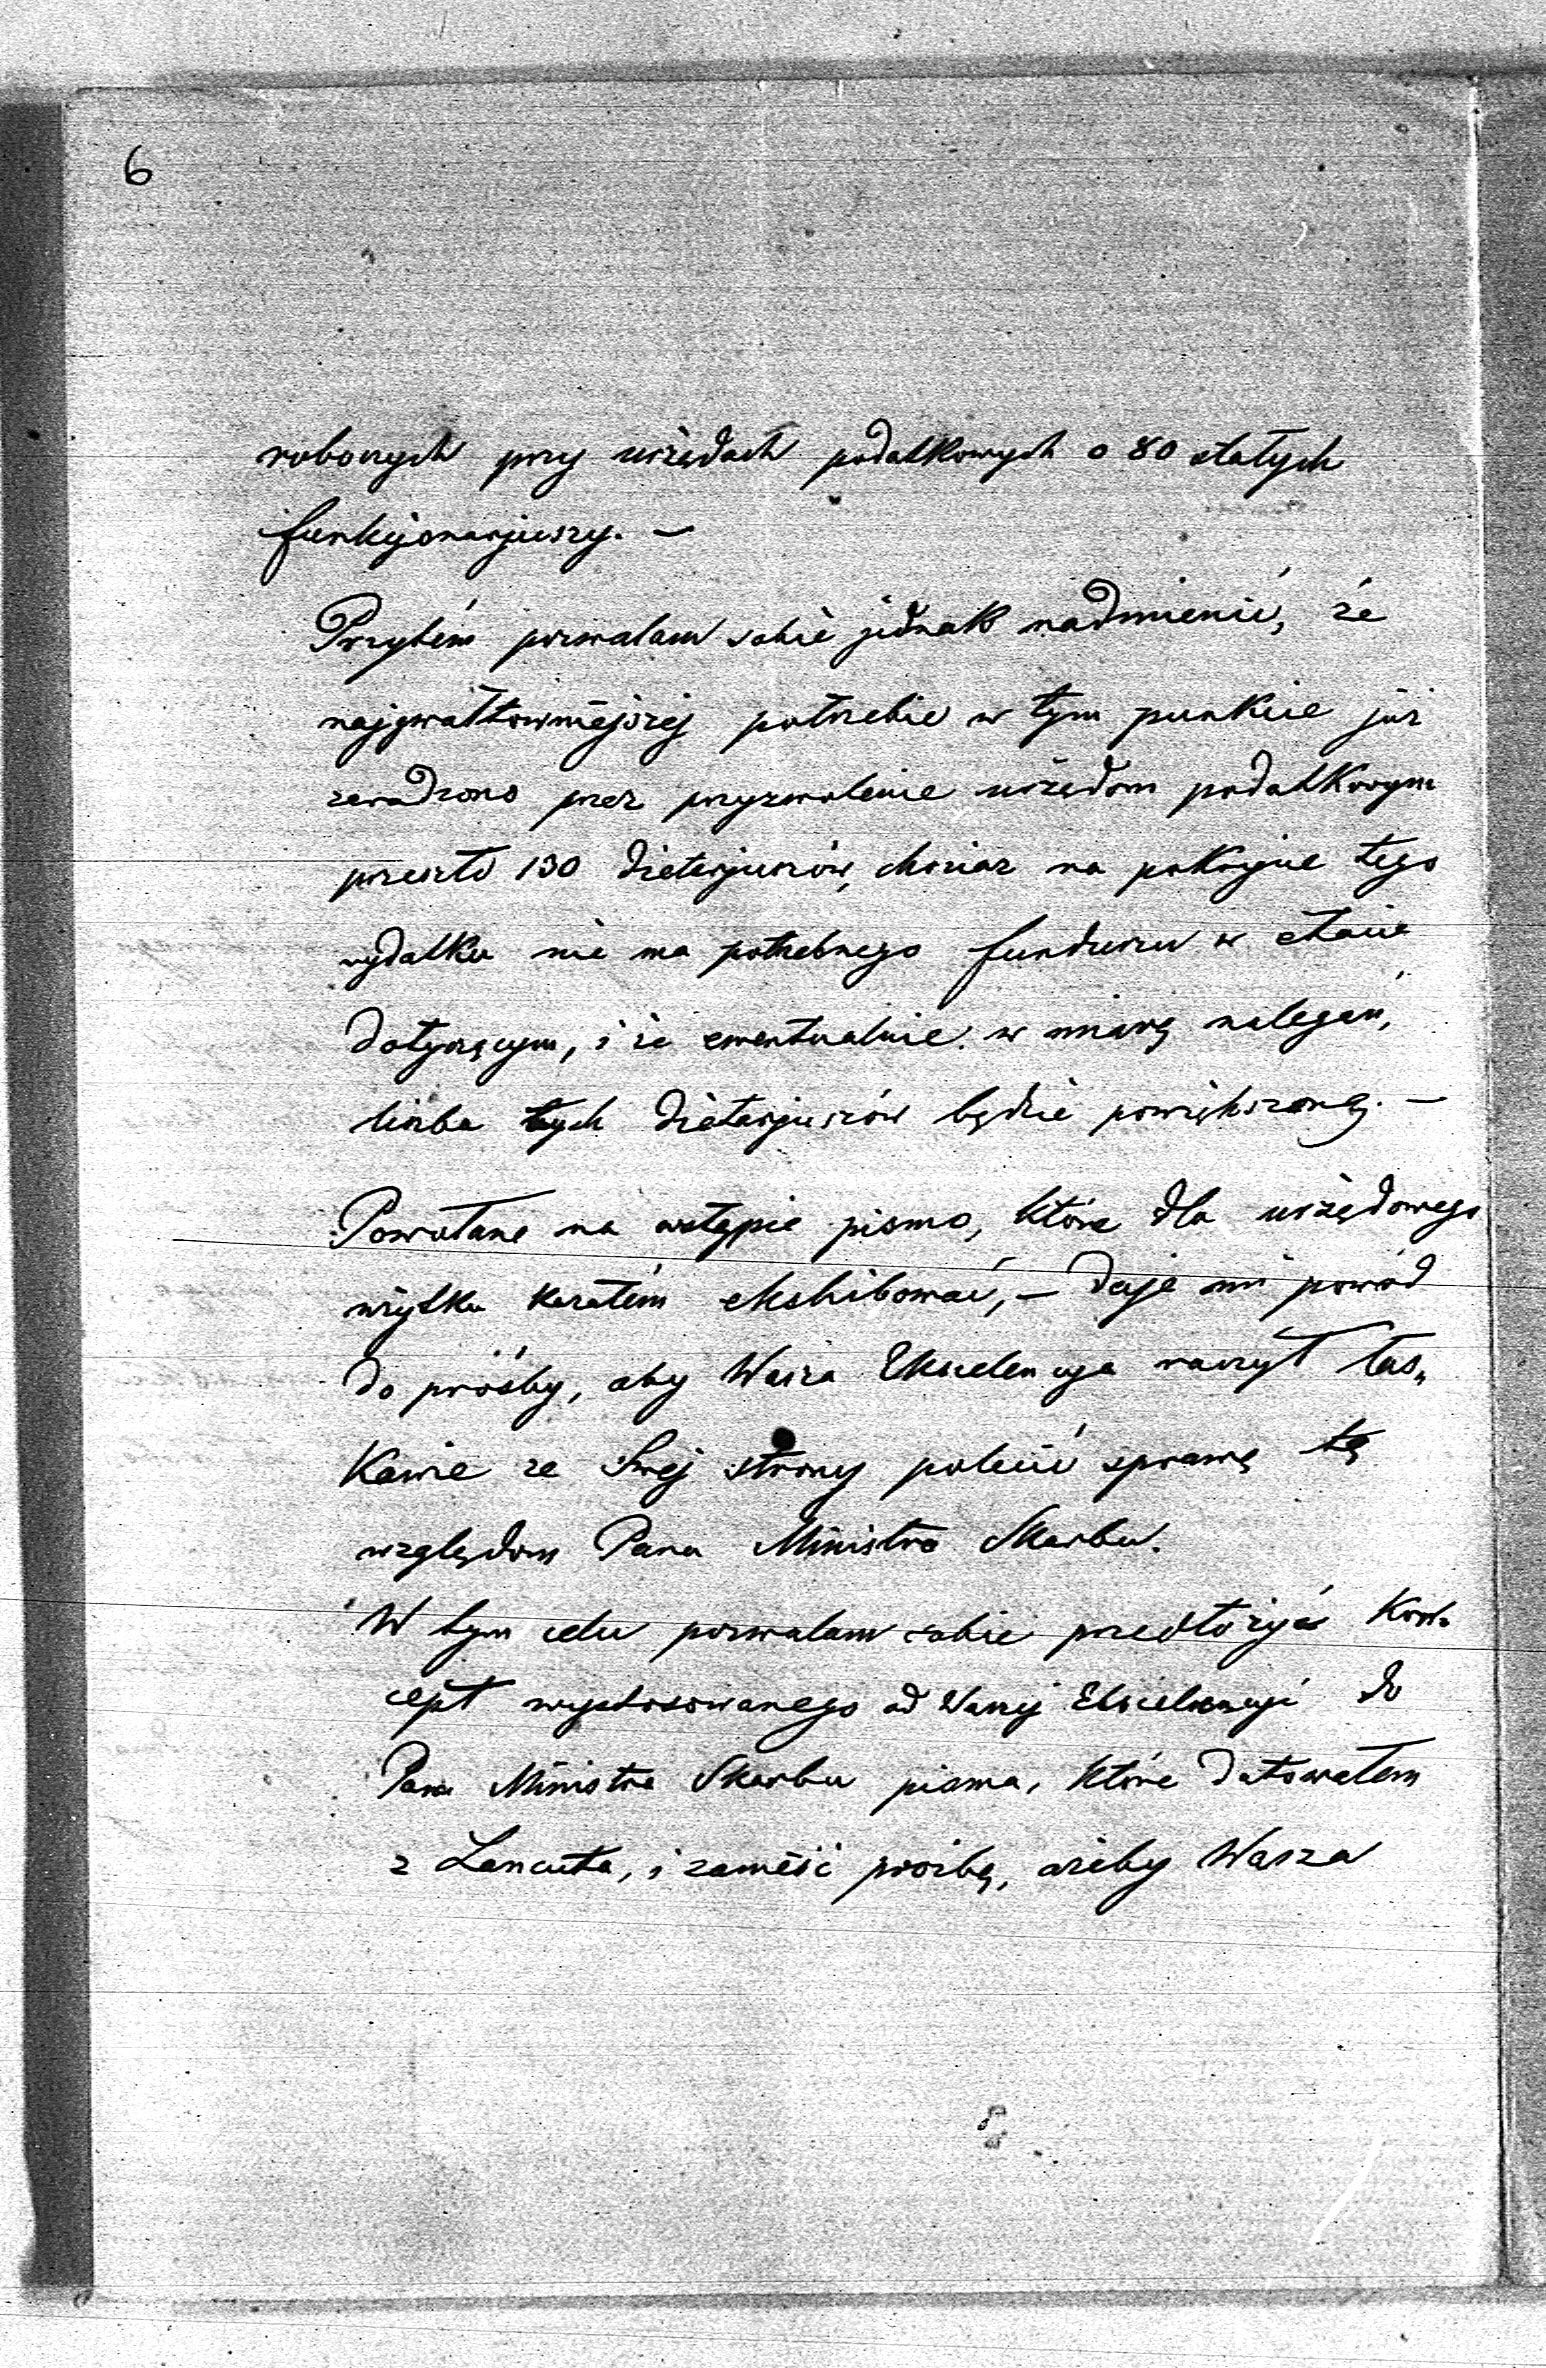 6
roboczych przy urzędach podatkowych o 80 stałych
funkcjonarjuszy. —
Przytém pozwalam sobie jednak nadmienić, że
najgwałtowniejszej potrzebie w tym punkcie już
zaradzono przez przyzwolenie urzędom podatkowym
przeszło 130 dietarjuszów, chociaż na pokrycie tego
wydatku nie ma potrzebnego funduszu w etacie
dotyczącym, i że ewentualnie w miarę nalegań,
liczba tych dietarjuszów będzie powiększoną. —
Powołane na wstępie pismo, które dla urzędowego
użytku kazałém ekshibować, — daje mi powód
do prośby, aby Wasza Ekscelencya raczył łas„
kawie ze Swej strony polecić sprawę tę
względom Pana Ministra Skarbu.
W tym celu pozwalam sobie przedłożyć kon„
cept wystosowanego od Waszej Ekscelencyi do
Pana Ministra Skarbu pisma, które datowałem
z Łancuta, i zanieść prośbę, ażeby Wasza